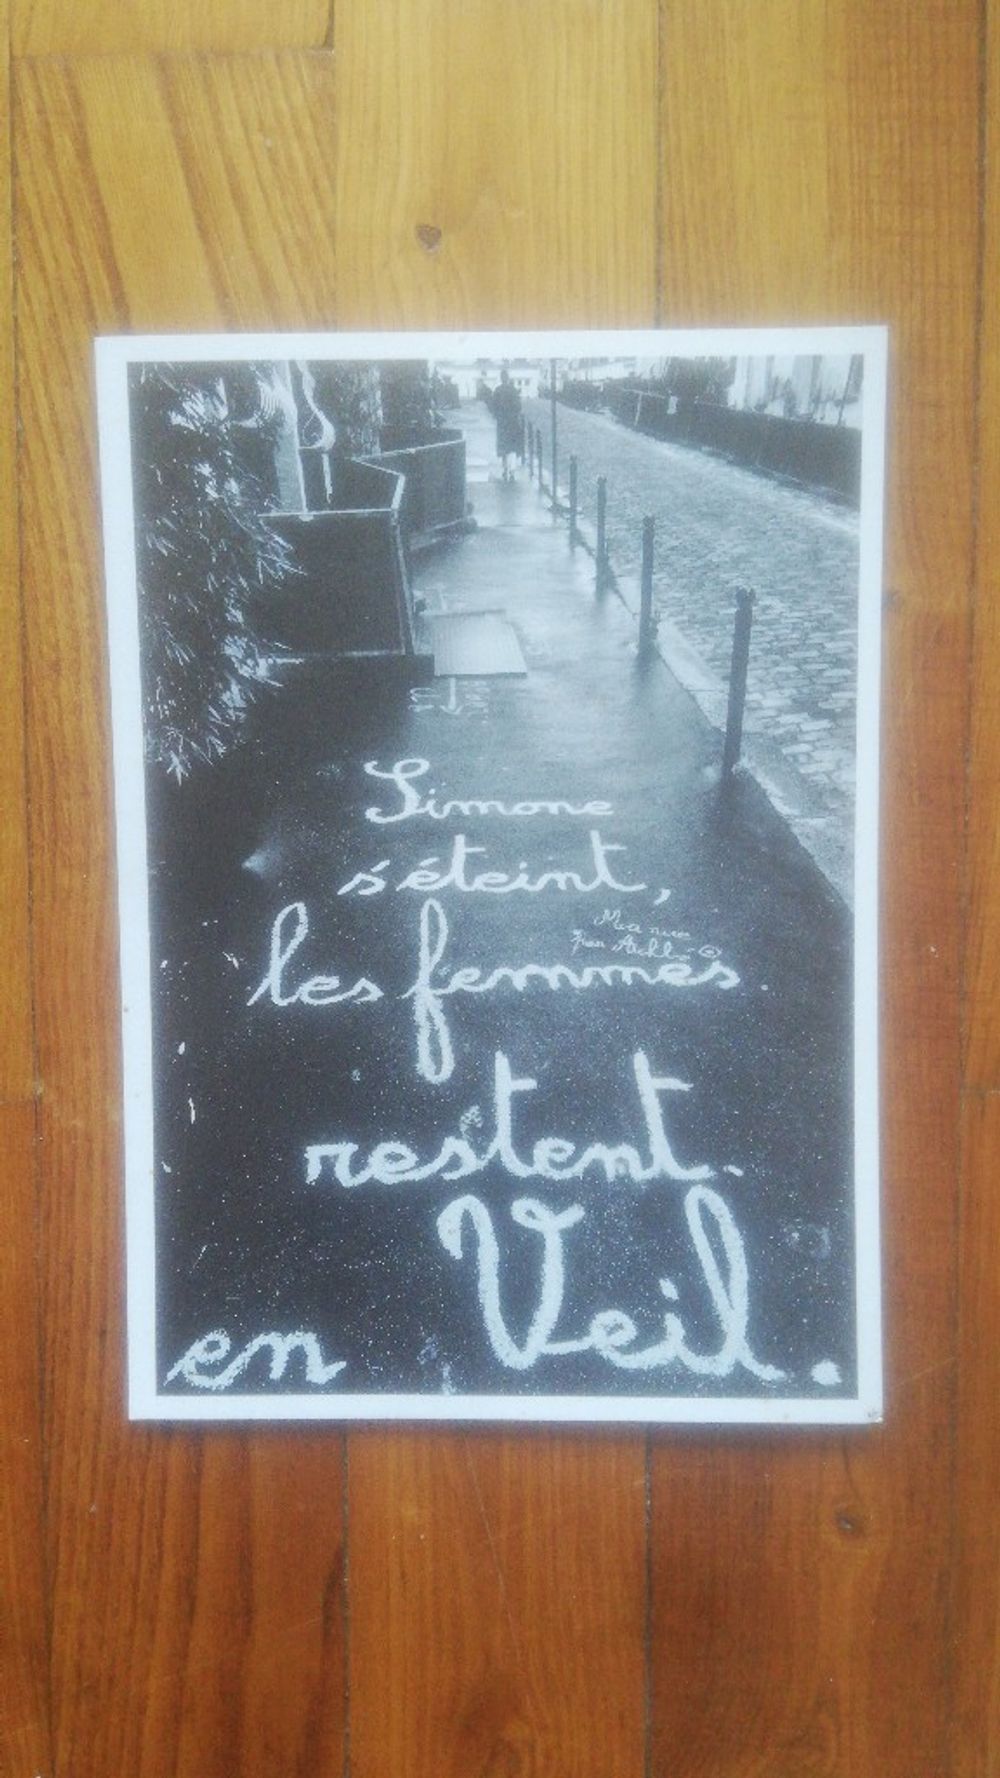 Simone
s'éteint,
les femmes.
restent.
en Veil.